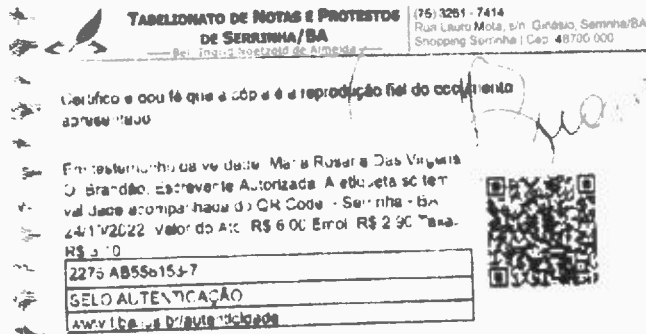 TABELIONATO DE NOTAS E PROTESTOS
DE SERRINHA/BA
Bel. Ingrid de Almeida
(75) 3261 - 7414
Rua Lauro Mota, s/n, Ginásio, Serrinha/BA
Shopping Serrinha | Cep. 48700 000
Certifico e dou fé que a cópia é a reprodução fiel do documento
apresentado
Em testemunho da verdade. Maria Rosaria Das Virgens
O. Brandão, Escrevente Autorizada. A etiqueta só tem
validade acompanhada do QR Code. - Serrinha - BA
24/10/2022. Valor do Ato: R$ 6.00 Emol: R$ 2.90 Taxa:
R$ 3.10
2276 AB556153-7
SELO AUTENTICAÇÃO
www.tjba.jus.br/autenticidade